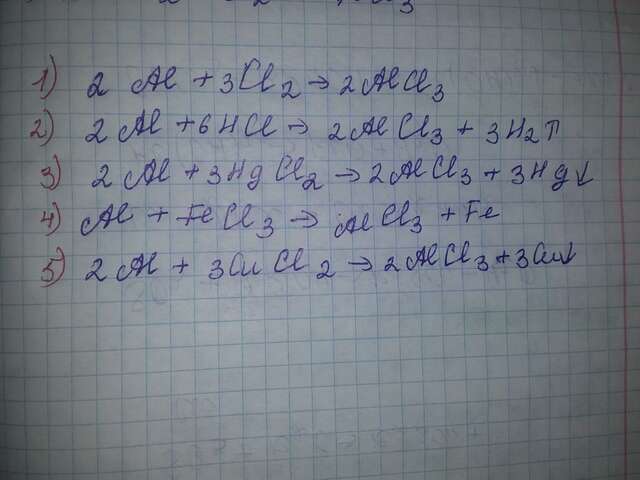 1) 2 Al + 3Cl₂ → 2AlCl₃
2) 2Al + 6HCl → 2AlCl₃ + 3H₂↑
3) 2Al + 3HgCl₂ → 2AlCl₃ + 3Hg↓
4) Al + FeCl₃ → AlCl₃ + Fe
5) 2Al + 3CuCl₂ → 2AlCl₃ + 3Cu↓